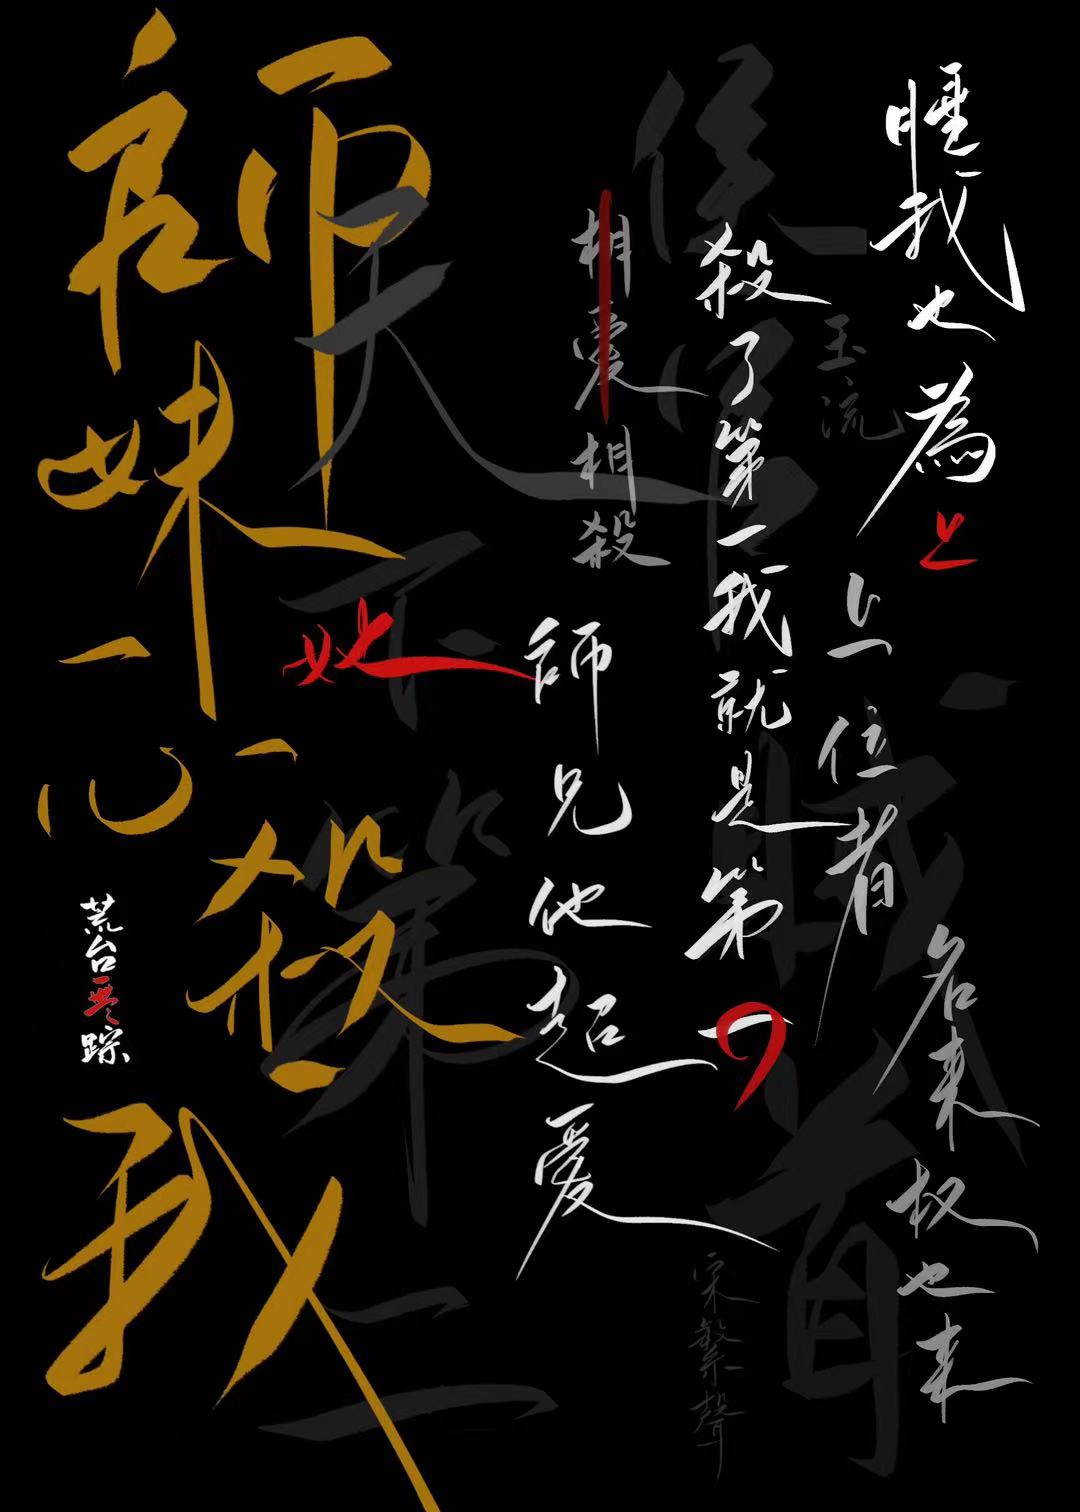 睡我也為上
上位者
名来权也来
玉流
殺了第一我就是第一
宋繁聲
相爱相殺
師兄他超爱
她
天下第二
師妹一心殺我
荒台無踪